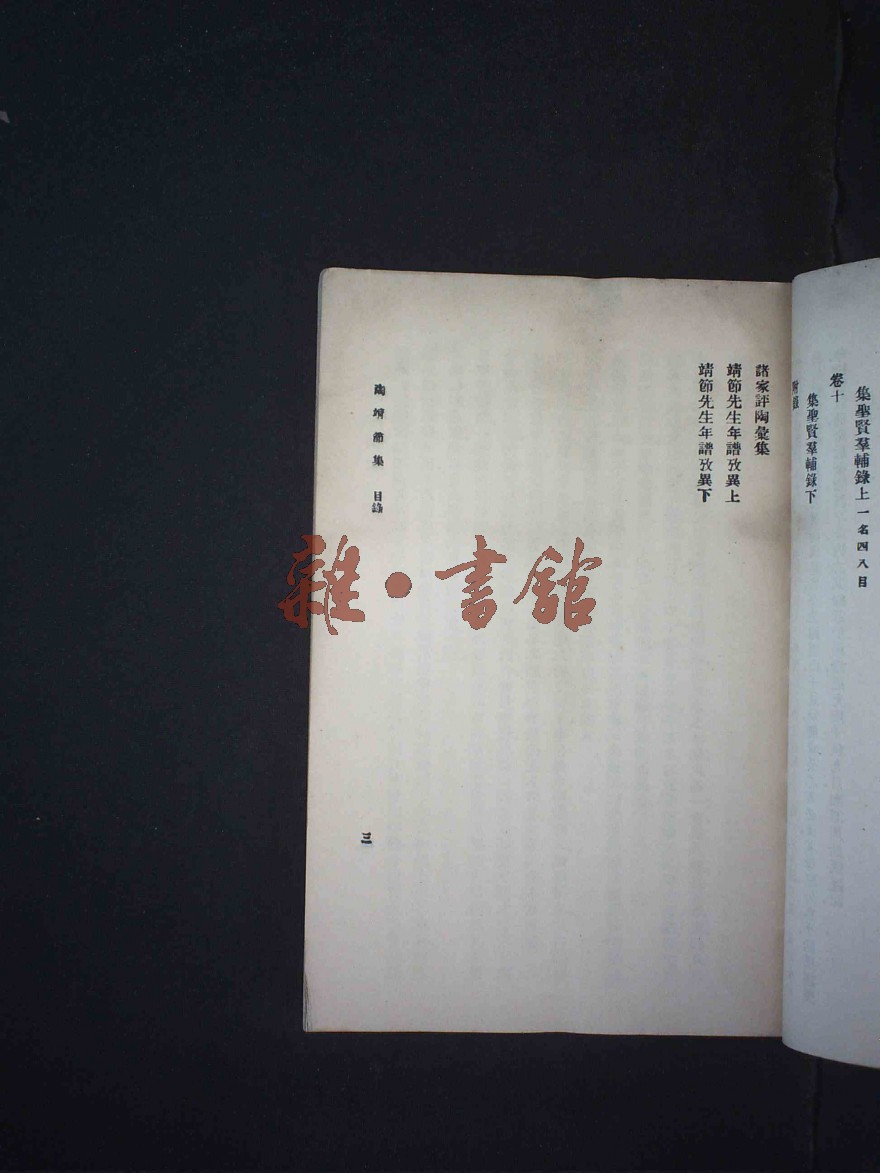 集聖賢羣輔錄上一名四八目
卷十
集聖賢羣輔錄下
附錄
諸家評陶彙集
靖節先生年譜攷異上
靖節先生年譜攷異下
陶靖節集 目錄
三
雜·書館